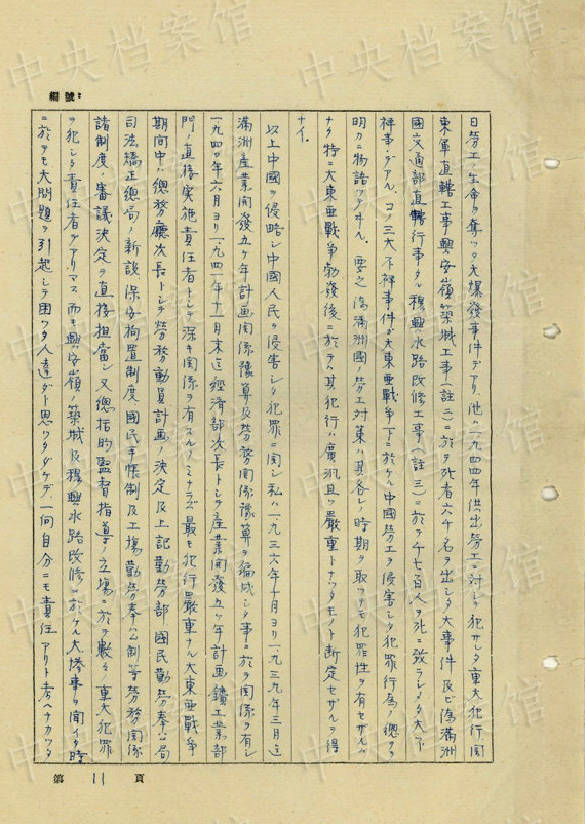 中央档案馆
編號：
日労工ノ生命ヲ奪ッタ大爆発事件デアリ 他ハ一九四四年供出労工ニ対シ犯サレタ重大犯行関
東軍直轄工事興安嶺ノ築城工事（註二）ニ於ケル死者六千名ヲ出シタ大事件及ビ偽満洲
国交通部直轄行事タル穆興水路改修工事（註三）ニ於テ千七百人ヲ死ニ致ラシメタ大不
祥事デアル、コノ三大不祥事件ガ大東亜戦争下ニ於ケル中国労工ヲ侵害シタ犯罪行為ノ総テヲ
明カニ物語ッテヰル。要之偽満洲国ノ労工対策ハ其各レノ時期ヲ取ッテモ犯罪性ヲ有セザルハ
ナク特ニ大東亜戦争勃発後ニ於テハ其犯行ハ廣汎且ツ厳重トナッタモノト断定セザルヲ得
ナイ。
以上中國ヲ侵略シ中國人民ヲ侵害シタ犯罪ニ関シ私ハ一九三六年十月ヨリ一九三九年三月迄
満洲産業開発五ケ年計画関係予算及労務関係予算ヲ編成シタ事ニ於テ関係ヲ有シ
一九四〇年六月ヨリ一九四一年十一月末迄経済部次長トシテ産業開発五ケ年計画鑛工業部
門ノ直接実施責任者トシテ深キ関係ヲ有スルノミナラズ最モ犯行厳重ナル大東亜戦争
期間中ハ總務廳次長トシテ労務動員計画ノ決定及上記勤労部國民勤労奉公局
司法矯正総局ノ新設保安拘置制度國民手帳制及工場勤労奉公制等労務関係
諸制度ノ審議決定ヲ直接担當シ又総括的監督指導ノ立場ニ於テ数々ノ重大犯罪
ヲ犯シタ責任者デアリマス 而モ興安嶺ノ築城及穆興水路改修ニ於ケル大惨事ヲ聞イタ時
ニ於テモ大問題ヲ引起シテ困ッタ人達ダト思ッタダケデ、一向自分ニモ責任アリト考ヘナカッタ
第 11 頁